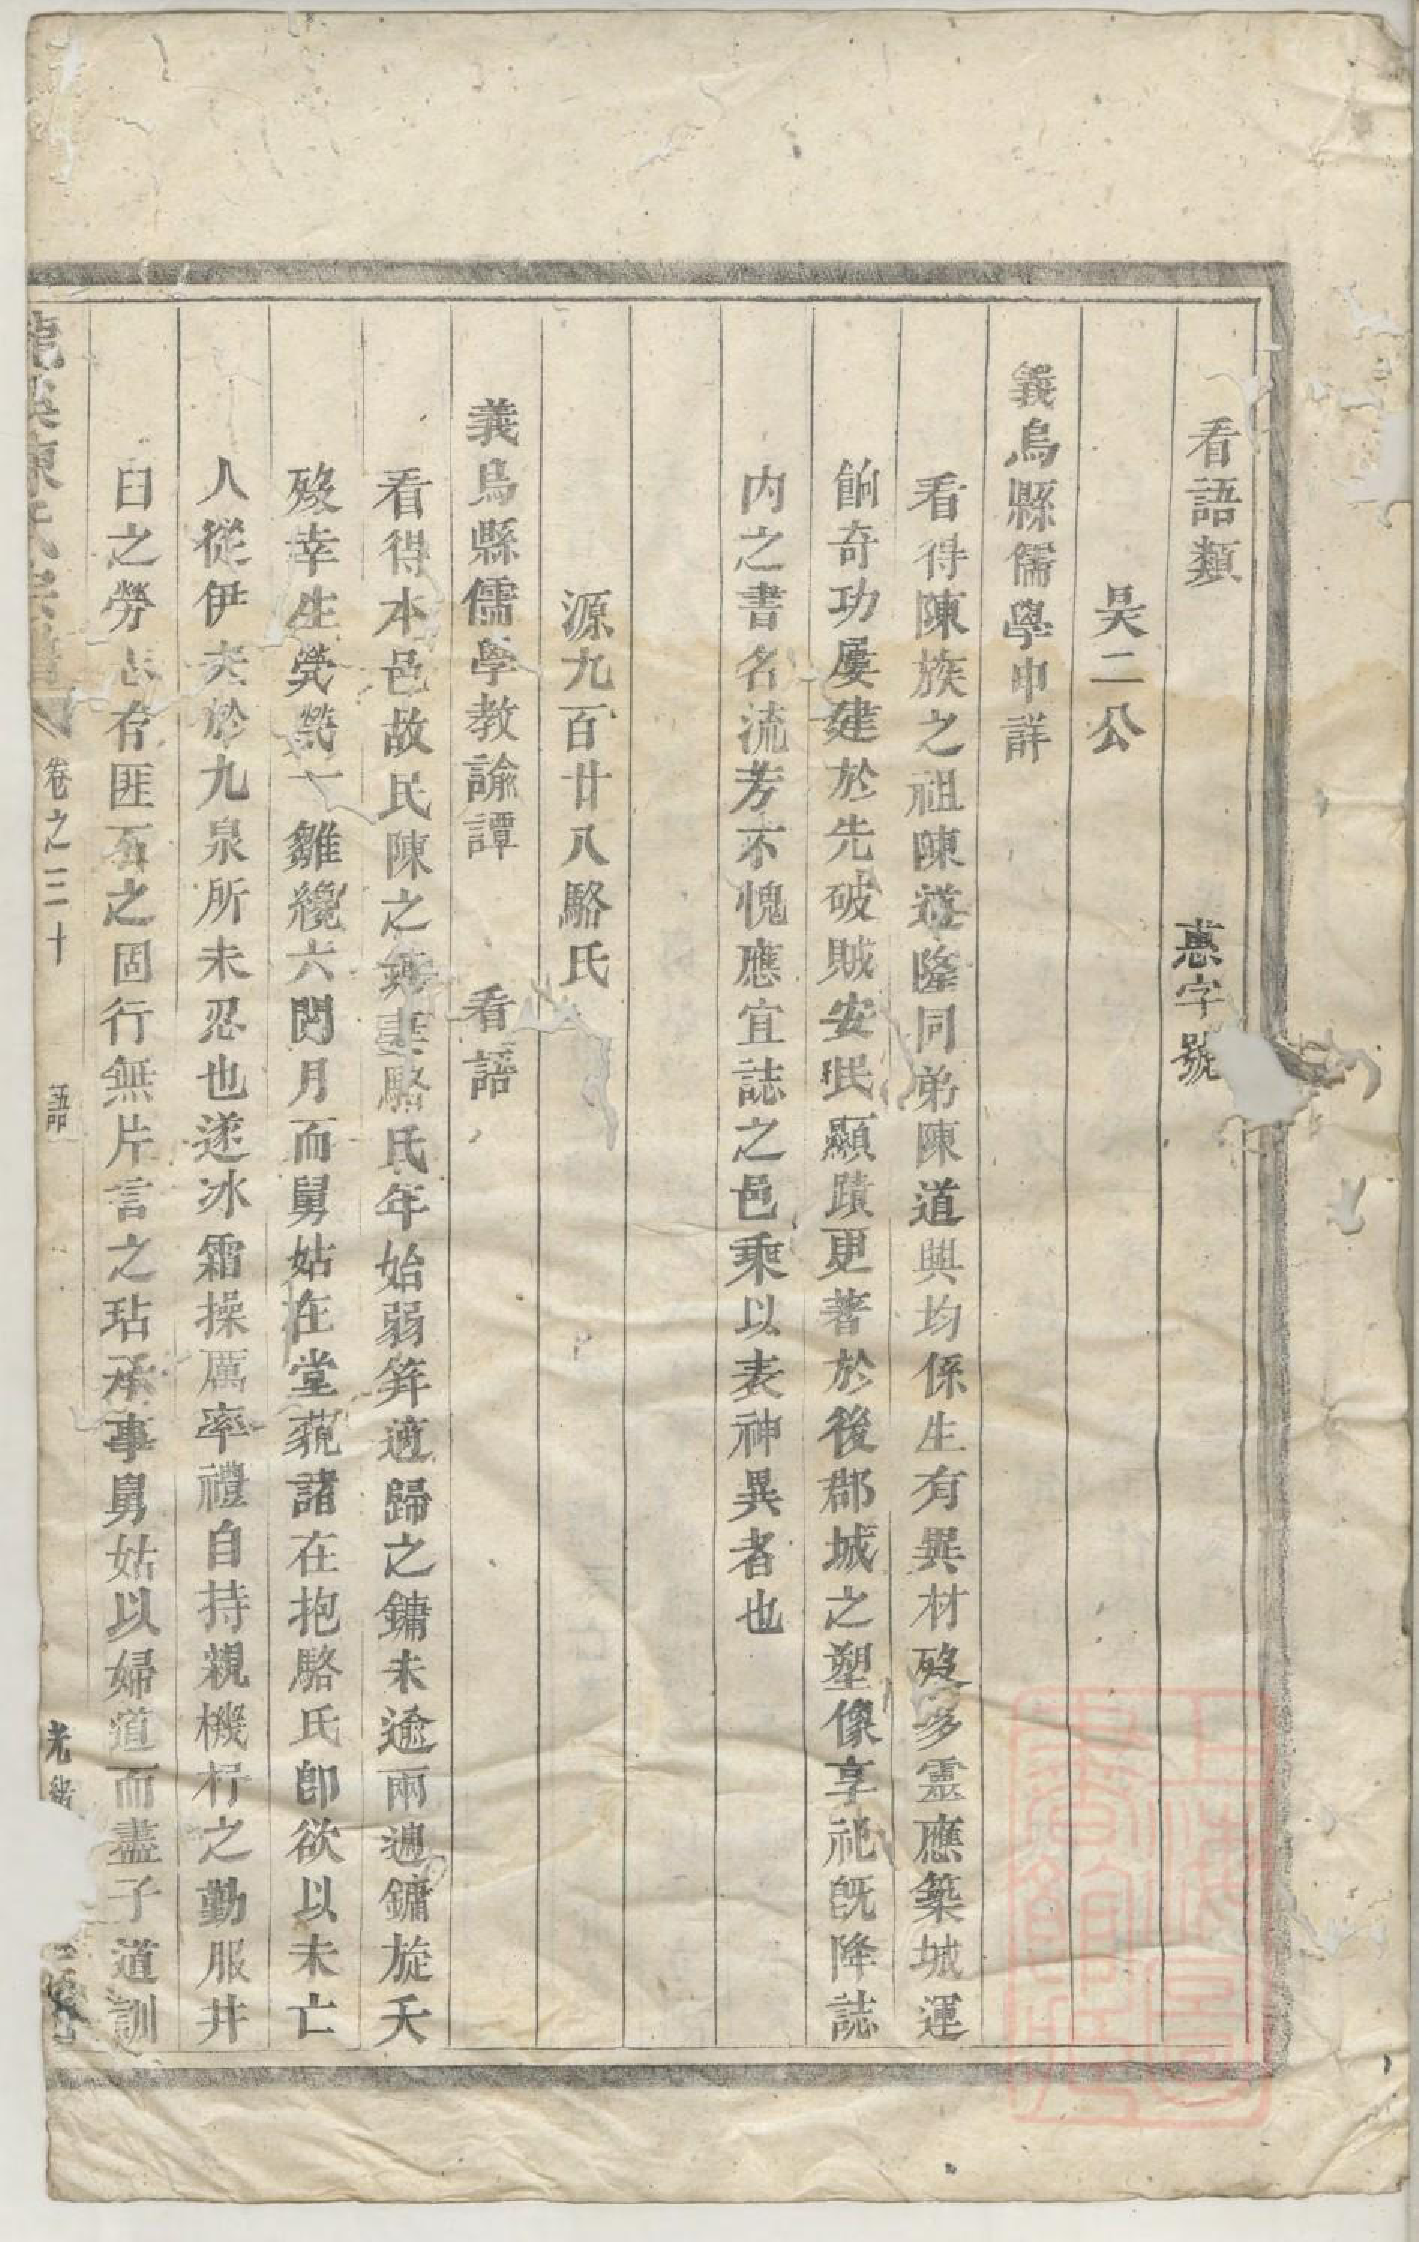 看語類 惠字號
吴二公
義烏縣儒學申詳
看得陳族之祖陳道隆同弟陳道興均係生有異材歿多靈應築城運
餉奇功屢建於先破賊安民顯蹟更著於後郡城之塑像享祀旣降誌
内之書名流芳不愧應宜誌之邑乘以表神異者也
源九百廿八駱氏
義烏縣儒學教諭譚 看語
看得本邑故民陳之鏞妻駱氏年始弱笄適歸之鏞未逾兩週鏞旋夭
歿幸生煢煢一雛纔六閱月而舅姑在堂藐諸在抱駱氏卽欲以未亡
人從伊夫於九泉所未忍也遂冰霜操厲率禮自持親機杼之勤服井
臼之勞志存匪石之固行無片言之玷承事舅姑以婦道而盡子道訓
龍溪陳氏宗譜 卷之三十 語 光緒